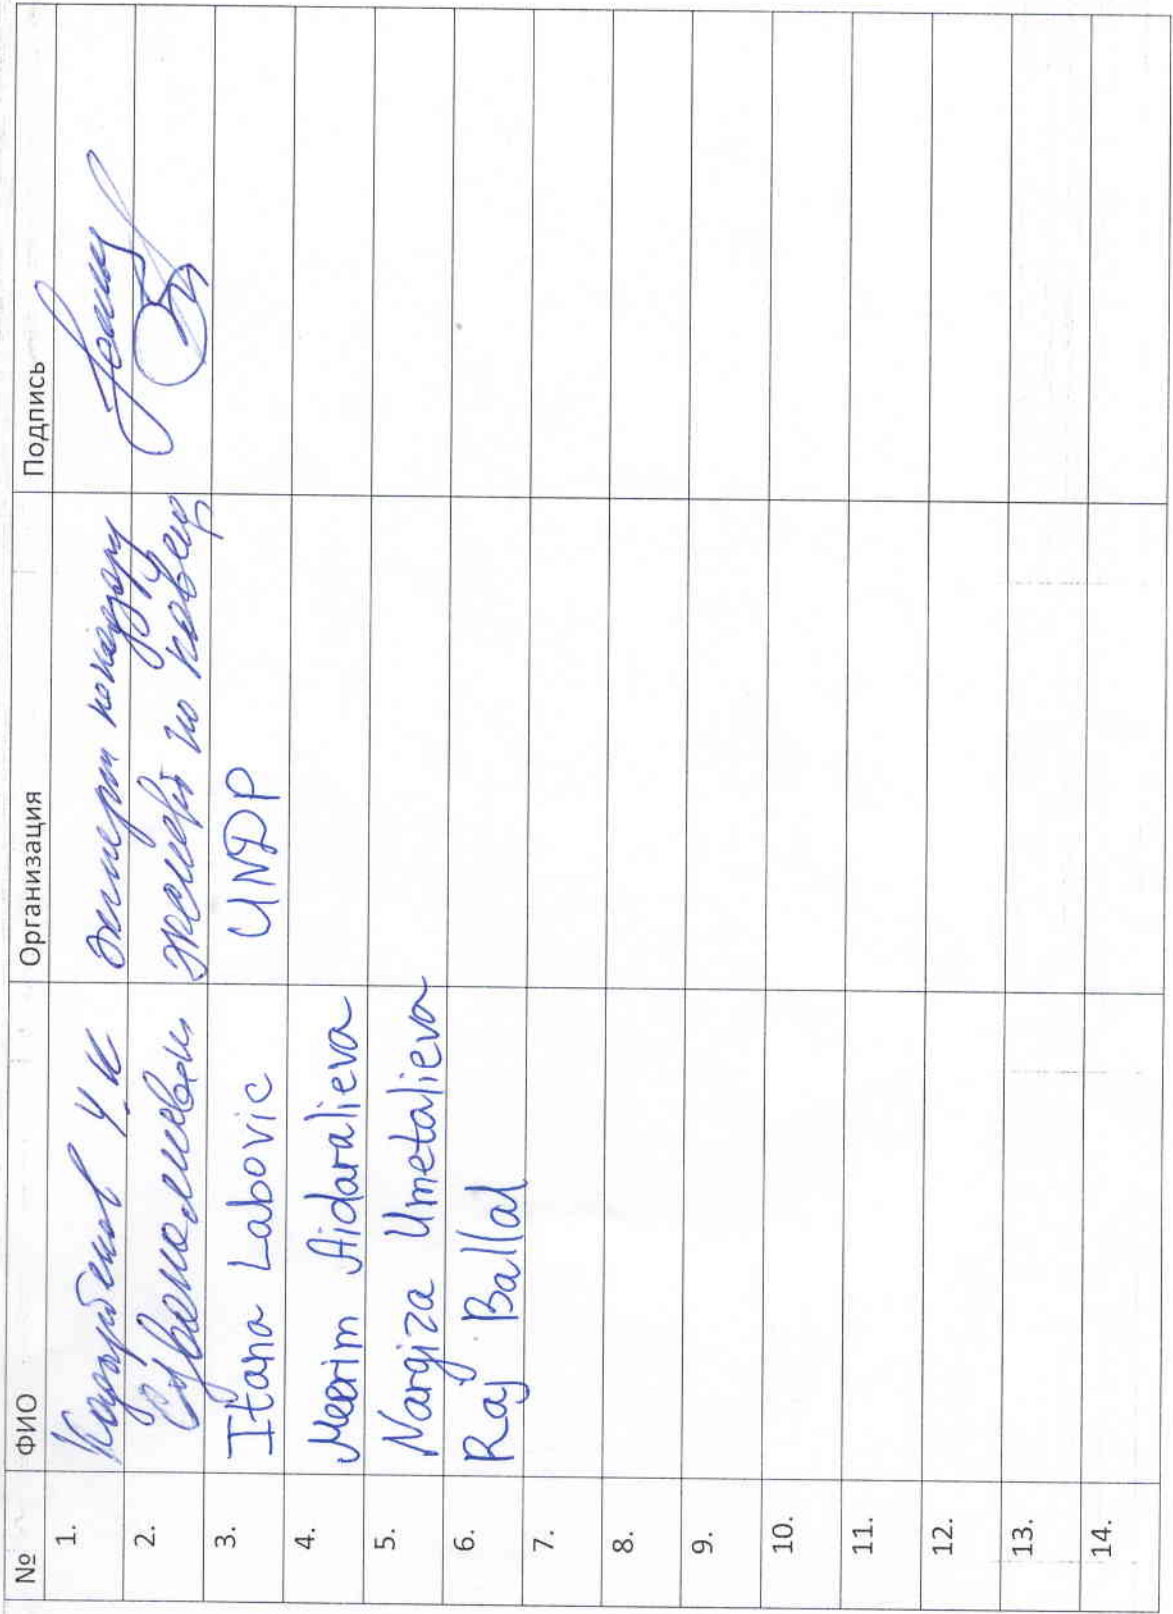 № ФИО Организация Подпись
1. У.К эксперт
2. эксперт по
3. Itana Labovic UNDP
4. Meerim Aidaralieva
5. Nargiza Umetalieva
6. Raj Ballal
7.
8.
9.
10.
11.
12.
13.
14.